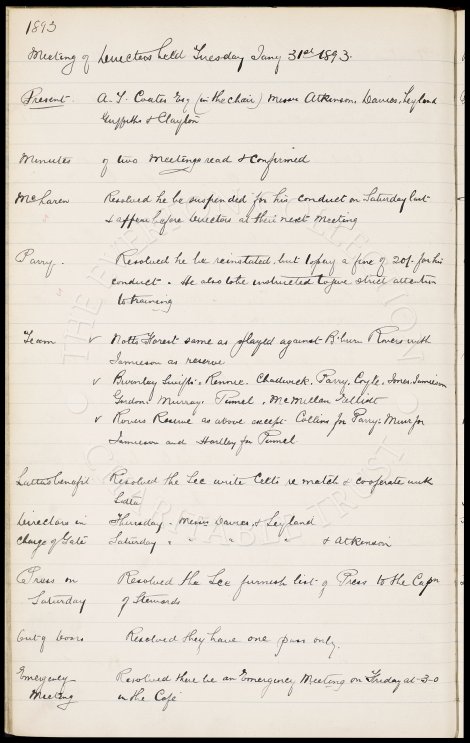 1893
Meeting of Directors held Tuesday Jany 31st 1893.
Present. A. T. Coates Esq (in the chair) Messrs Atkinson, Davies, Leyland
Griffiths & Clayton
Minutes of two Meetings read & confirmed
McLaren Resolved he be suspended for his conduct on Saturday last
& appear before Directors at their next Meeting
Parry. Resolved he be reinstated, but to pay a fine of 20/- for his
conduct. He also to be instructed to give strict attention
to training
Team v Notts Forest same as played against B'burn Rovers with
Jamieson as reserve
v Burnley Swifts. Rennie. Chadwick. Parry. Coyle. Jones. Jamieson
Gordon. Murray. Pinnel. McMillan. Elliott
v Rovers Reserve as above except Collins for Parry. Muir for
Jamieson and Hartley for Pinnel
benefit Resolved the Sec write Celts re match & cooperate with
Directors in Thursday - Messrs Davies & Leyland
Charge of Gate Saturday " " " " & Atkinson
Press on Resolved the Sec furnish list of Press to the Capn
Saturday of Stewards
Resolved they have one pass only.
Emergency Resolved there be an Emergency Meeting on Friday at 3-0
Meeting in the Café
THE EVERTON COLLECTION
CHARITABLE TRUST